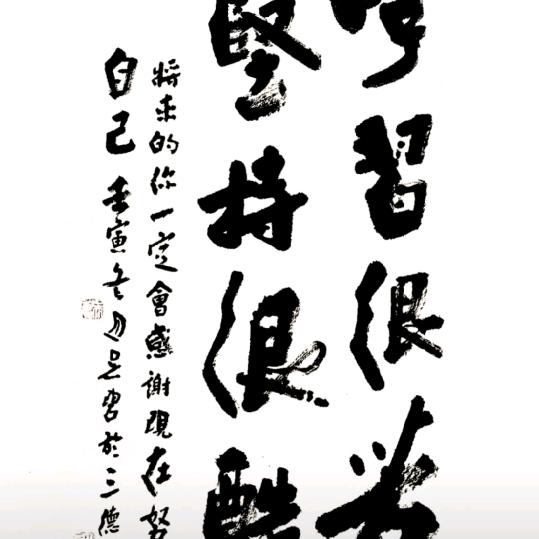 習很苦
堅持很酷
將来的你一定會感謝現在努
自己 壬寅冬月 書於三德